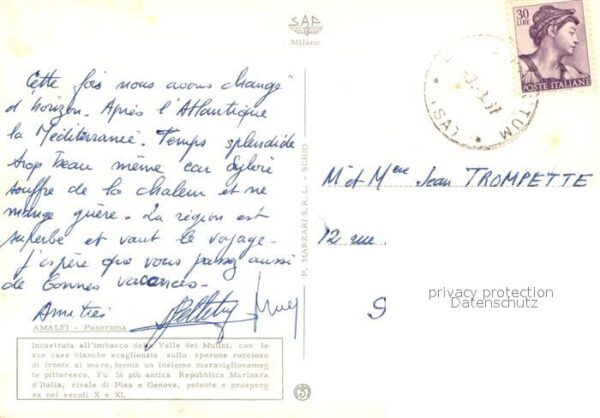 SAF
Milano
30
LIRE
POSTE ITALIANE
TUM
(SA)
Cette fois nous avons changé
d'horizon. Après l'Atlantique
la Méditerranée. Temps splendide
trop beau même car Sylvie
souffre de la chaleur et ne
mange guère. La région est
superbe et vaut le voyage.
j'espère que vous passez aussi
de bonnes vacances.
Amitiés
M et Mme Jean TROMPETTE
12 rue
S
P. MARZARI S.R.L. - SCHIO
privacy protection
Datenschutz
AMALFI - Panorama
Incastrata all'imbocco della Valle dei Mulini, con le
sue case bianche scaglionate sullo sperone roccioso
di fronte al mare, forma un insieme meravigliosamen-
te pittoresco. Fu la più antica Repubblica Marinara
d'Italia, rivale di Pisa e Genova, potente e prospero-
sa nei secoli X e XI.